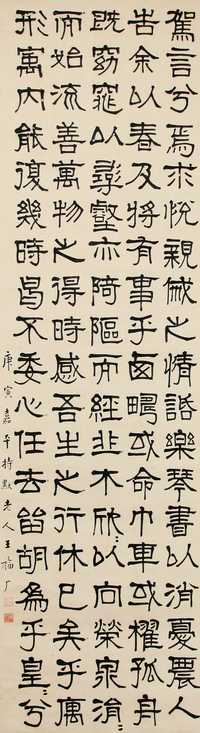 駕言兮焉求悅親戚之情話樂琴書以消憂農人
告余以春及將有事乎西疇或命巾車或櫂孤舟
既窈窕以尋壑亦陭䧢而經丘木欣〻以向榮泉涓〻
而始流善萬物之得時感吾生之行休已矣乎寓
形寓內能復幾時曷不委心任去留胡為乎皇〻兮
庚寅嘉平持默老人王福厂